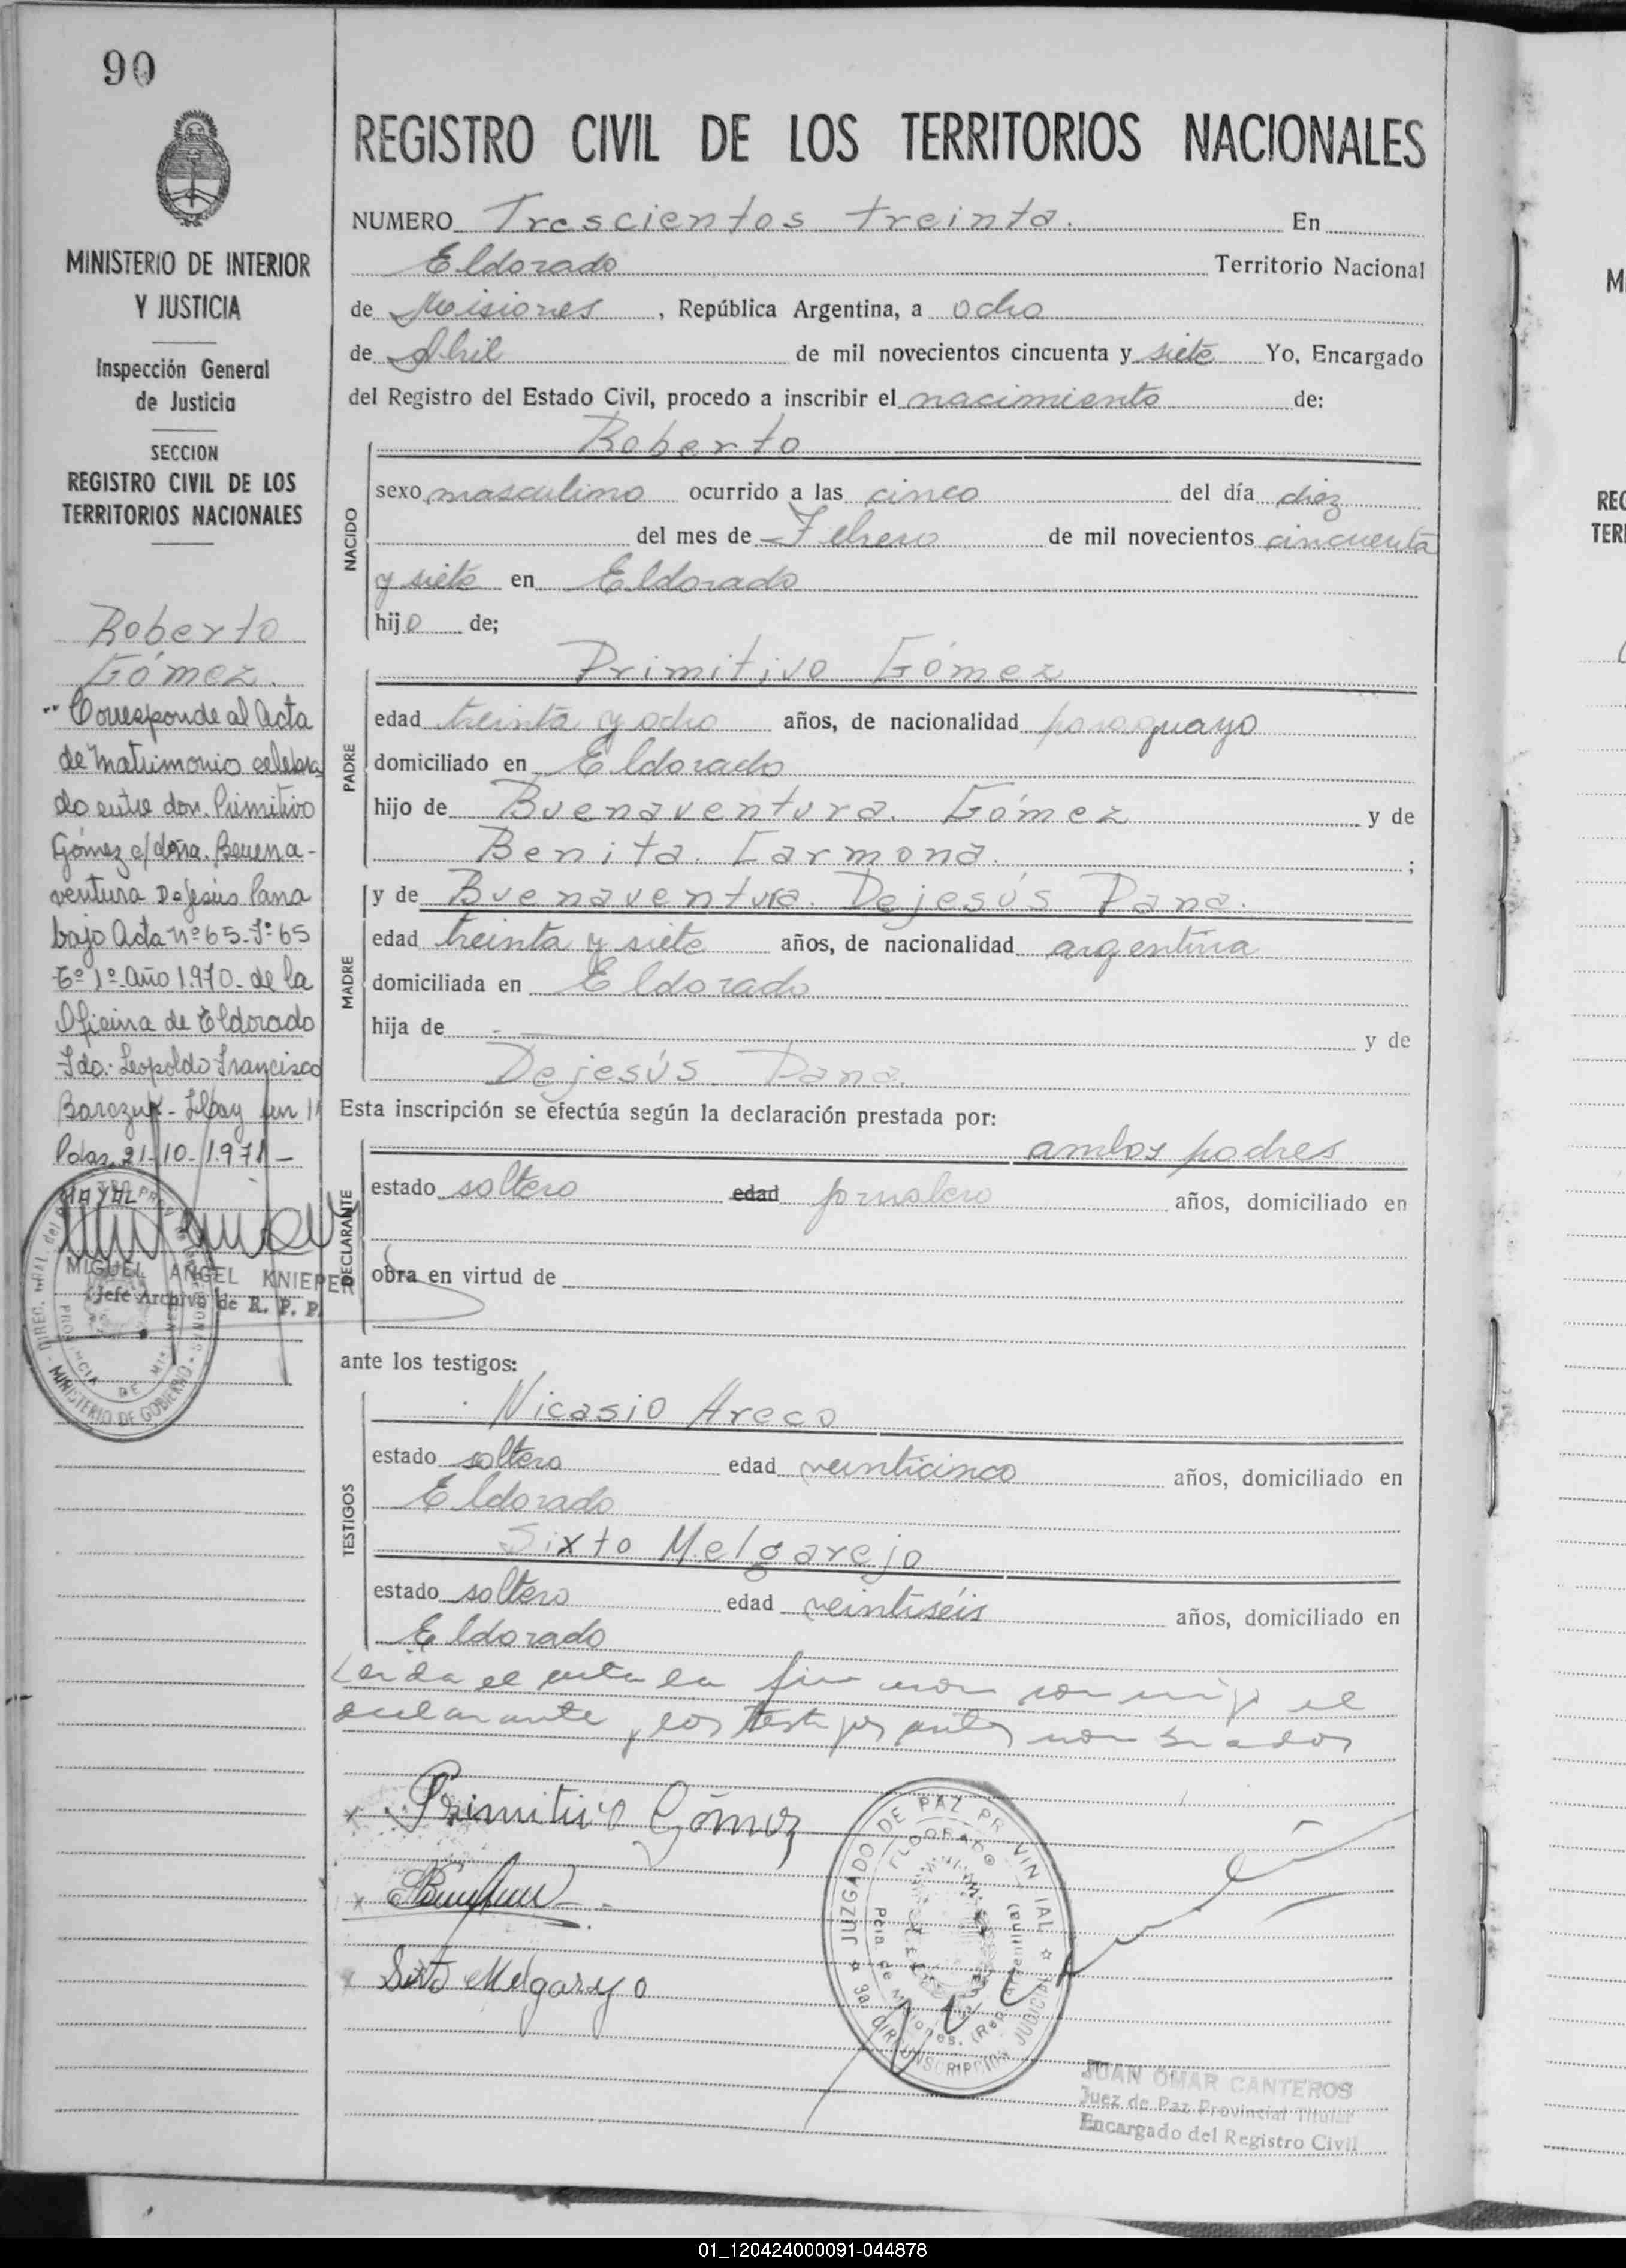 90
MINISTERIO DE INTERIOR
Y JUSTICIA
Inspección General
de Justicia
SECCION
REGISTRO CIVIL DE LOS
TERRITORIOS NACIONALES
Roberto
Gómez.
Corresponde al Acta
de Matrimonio celebra
do entre don. Primitivo
Gómez c/doña. Buena-
ventura Dejesús Pana
bajo Acta nº 65. Fº 65
Tº 1º Año 1.970. de la
Oficina de Eldorado
Fdo: Leopoldo Francisco
Barczuk - Hay un
Pdas. 21-10-1.971 -
MIGUEL ANGEL KNIEPER
Jefe Archivo de R. P. P.
MINISTERIO DE GOBIERNO
REGISTRO CIVIL DE LOS TERRITORIOS NACIONALES
NUMERO Trescientos treinta. En
Eldorado Territorio Nacional
de Misiones, República Argentina, a ocho
de Abril de mil novecientos cincuenta y siete Yo, Encargado
del Registro del Estado Civil, procedo a inscribir el nacimiento de:
Roberto
NACIDO
sexo masculino ocurrido a las cinco del día diez
del mes de Febrero de mil novecientos cincuenta
y siete en Eldorado
hijo de;
Primitivo Gómez
PADRE
edad treinta y ocho años, de nacionalidad paraguayo
domiciliado en Eldorado
hijo de Buenaventura. Gómez y de
Benita. Carmona. ;
y de Buenaventura. Dejesús Pana.
MADRE
edad treinta y siete años, de nacionalidad argentina
domiciliada en Eldorado
hija de - y de
Dejesús. Pana.
Esta inscripción se efectúa según la declaración prestada por:
ambos padres
DECLARANTE
estado soltero edad jornalero años, domiciliado en
obra en virtud de
ante los testigos:
Nicasio Areco
TESTIGOS
estado soltero edad veinticinco años, domiciliado en
Eldorado
Sixto Melgarejo
estado soltero edad veintiséis años, domiciliado en
Eldorado
Leida el acta la firman conmigo el
declarante y los testigos antes nombrados
Primitivo Gómez
Sixto Melgarejo
JUZGADO DE PAZ PROVINCIAL
ELDORADO
Pcia. de Misiones. (Rep. Argentina)
3a. CIRCUNSCRIPCION JUDICIAL
JUAN OMAR CANTEROS
Juez de Paz Provincial Titular
Encargado del Registro Civil
M
REG
TER
01_120424000091-044878